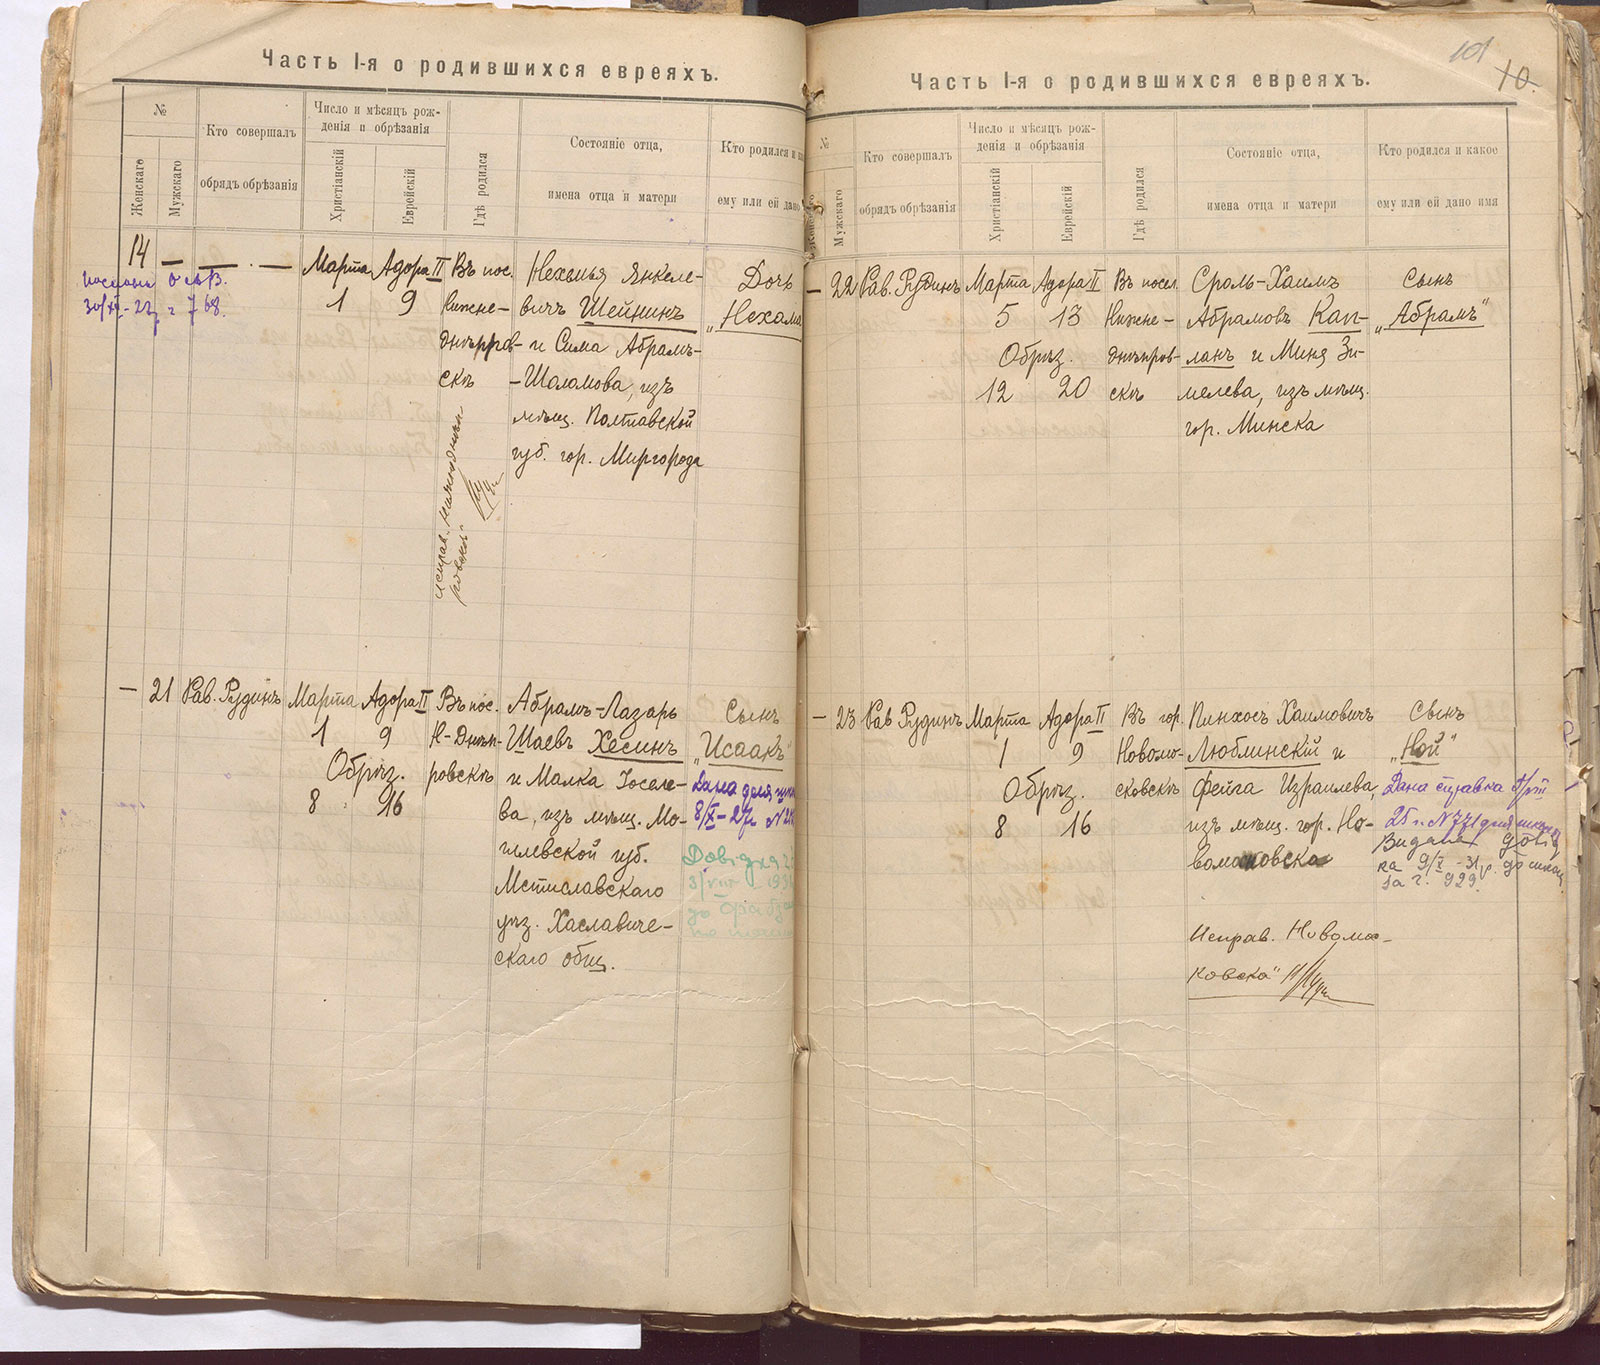 Часть I-я о родившихся евреяхъ.
№
Женскаго
Мужскаго
Кто совершалъ
обрядъ обрѣзанія
Число и мѣсяцъ рож-
денія и обрѣзанія
Христіанскій
Еврейскій
Гдѣ родился
Состояніе отца,
имена отца и матери
Кто родился и
ему или ей дано
14 — — . —
Марта
1
Адора II
9
Въ пос.
Нижне-
днѣпров-
скѣ
Нехемья Янкеле-
вичъ Шейнинъ
и Сима Абрамъ-
-Шоломова, изъ
мѣщ. Полтавской
губ. гор. Миргорода
Дочь
„Нехама
30/XI-22 г. 768.
— 21
Рав. Рудинъ
Марта
1
Адора II
9
Обрѣз.
8 16
Въ пос.
Н-Днѣп-
ровскѣ
Абрамъ-Лазарь
Шаевъ Хесинъ
и Малка Іоселе-
ва, изъ мѣщ. Мо-
гилевской губ.
Мстиславскаго
уѣз. Хаславиче-
скаго общ.
Сынъ
„Исаакъ"
Дана для
8/X-27г. №
3/VIII 193
до
Часть I-я о родившихся евреяхъ.
101
10.
№
Женскаго
Мужскаго
Кто совершалъ
обрядъ обрѣзанія
Число и мѣсяцъ рож-
денія и обрѣзанія
Христіанскій
Еврейскій
Гдѣ родился
Состояніе отца,
имена отца и матери
Кто родился и какое
ему или ей дано имя
— 22
Рав. Рудинъ
Марта
5
Адора II
13
Обрѣз.
12 20
Въ посел.
Нижне-
днѣпров-
скѣ
Сроль-Хаимъ
Абрамовъ Кап-
ланъ и Миня Зи-
мелева, изъ мѣщ.
гор. Минска
Сынъ
„Абрамъ"
— 23
Рав Рудинъ
Марта
1
Адора II
9
Обрѣз.
8 16
Въ гор.
Новомо-
сковскѣ
Пинхосъ Хаимовичъ
Люблинскій и
Фейга Израилева,
изъ мѣщ. гор. Но-
вомосковска
Исправ. Новомос-
ковска"
Сынъ
„Ной"
Дана справка
25 г. №771 для школы
Видана
ка 9/X -31 р. до школ.
за ч. 929.